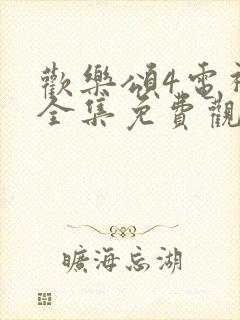 歡樂頌4電視
全集免費觀
曠海忘湖